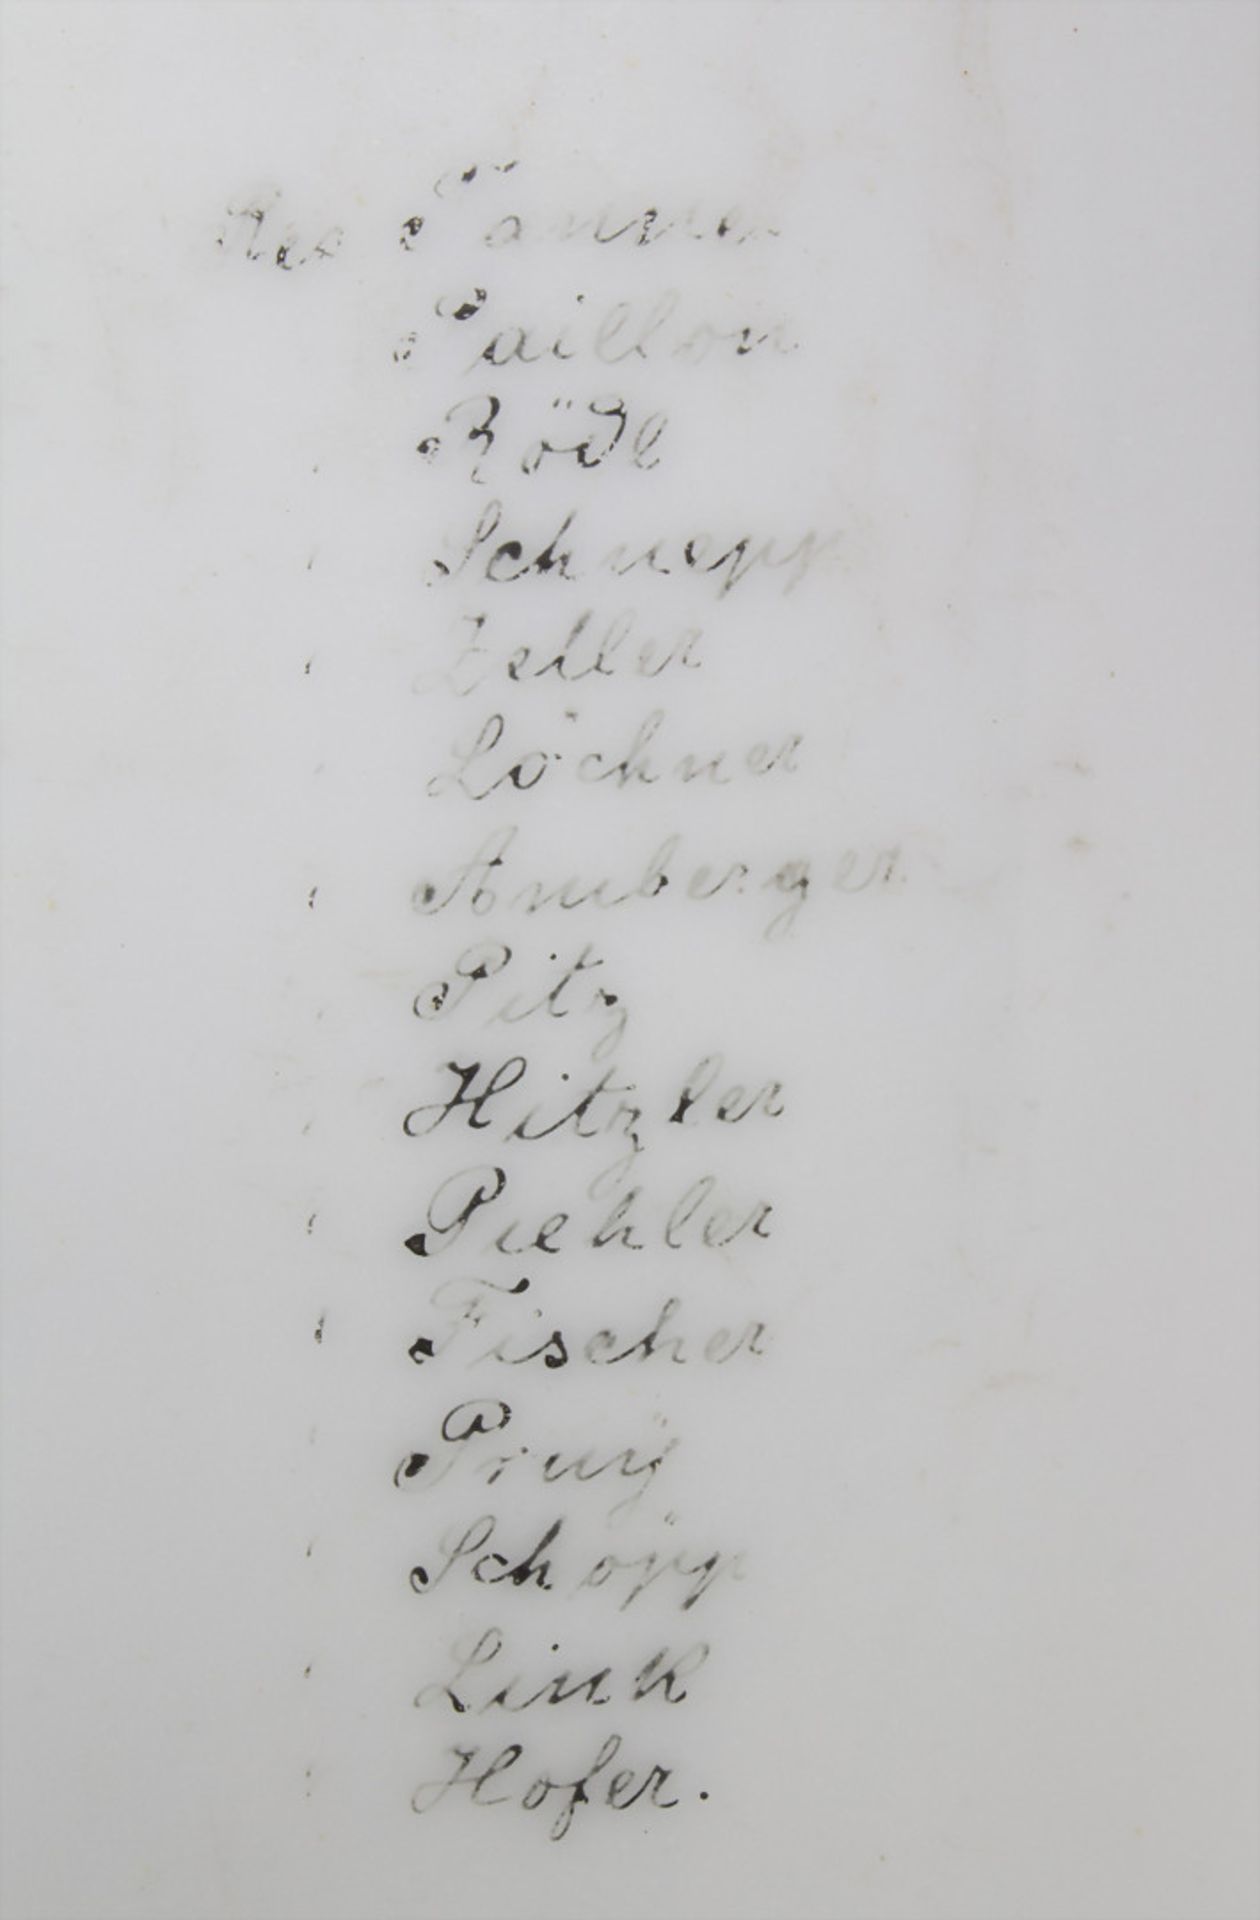 Res. Tanner
Paillon
Rödl
Schnepp
Zeller
Löchner
Amberger
Pitz
Hitzler
Piehler
Fischer
Pruÿ
Schöpp
Link
Hofer.